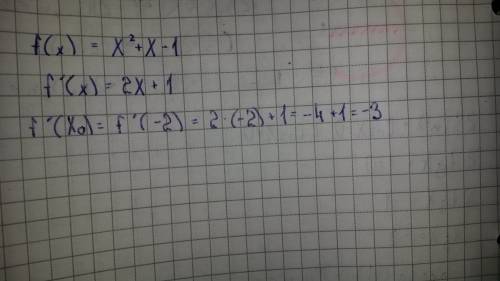 f(x) = x²+x-1
f'(x) = 2x+1
f'(x₀) = f'(-2) = 2·(-2)+1 = -4+1 = -3